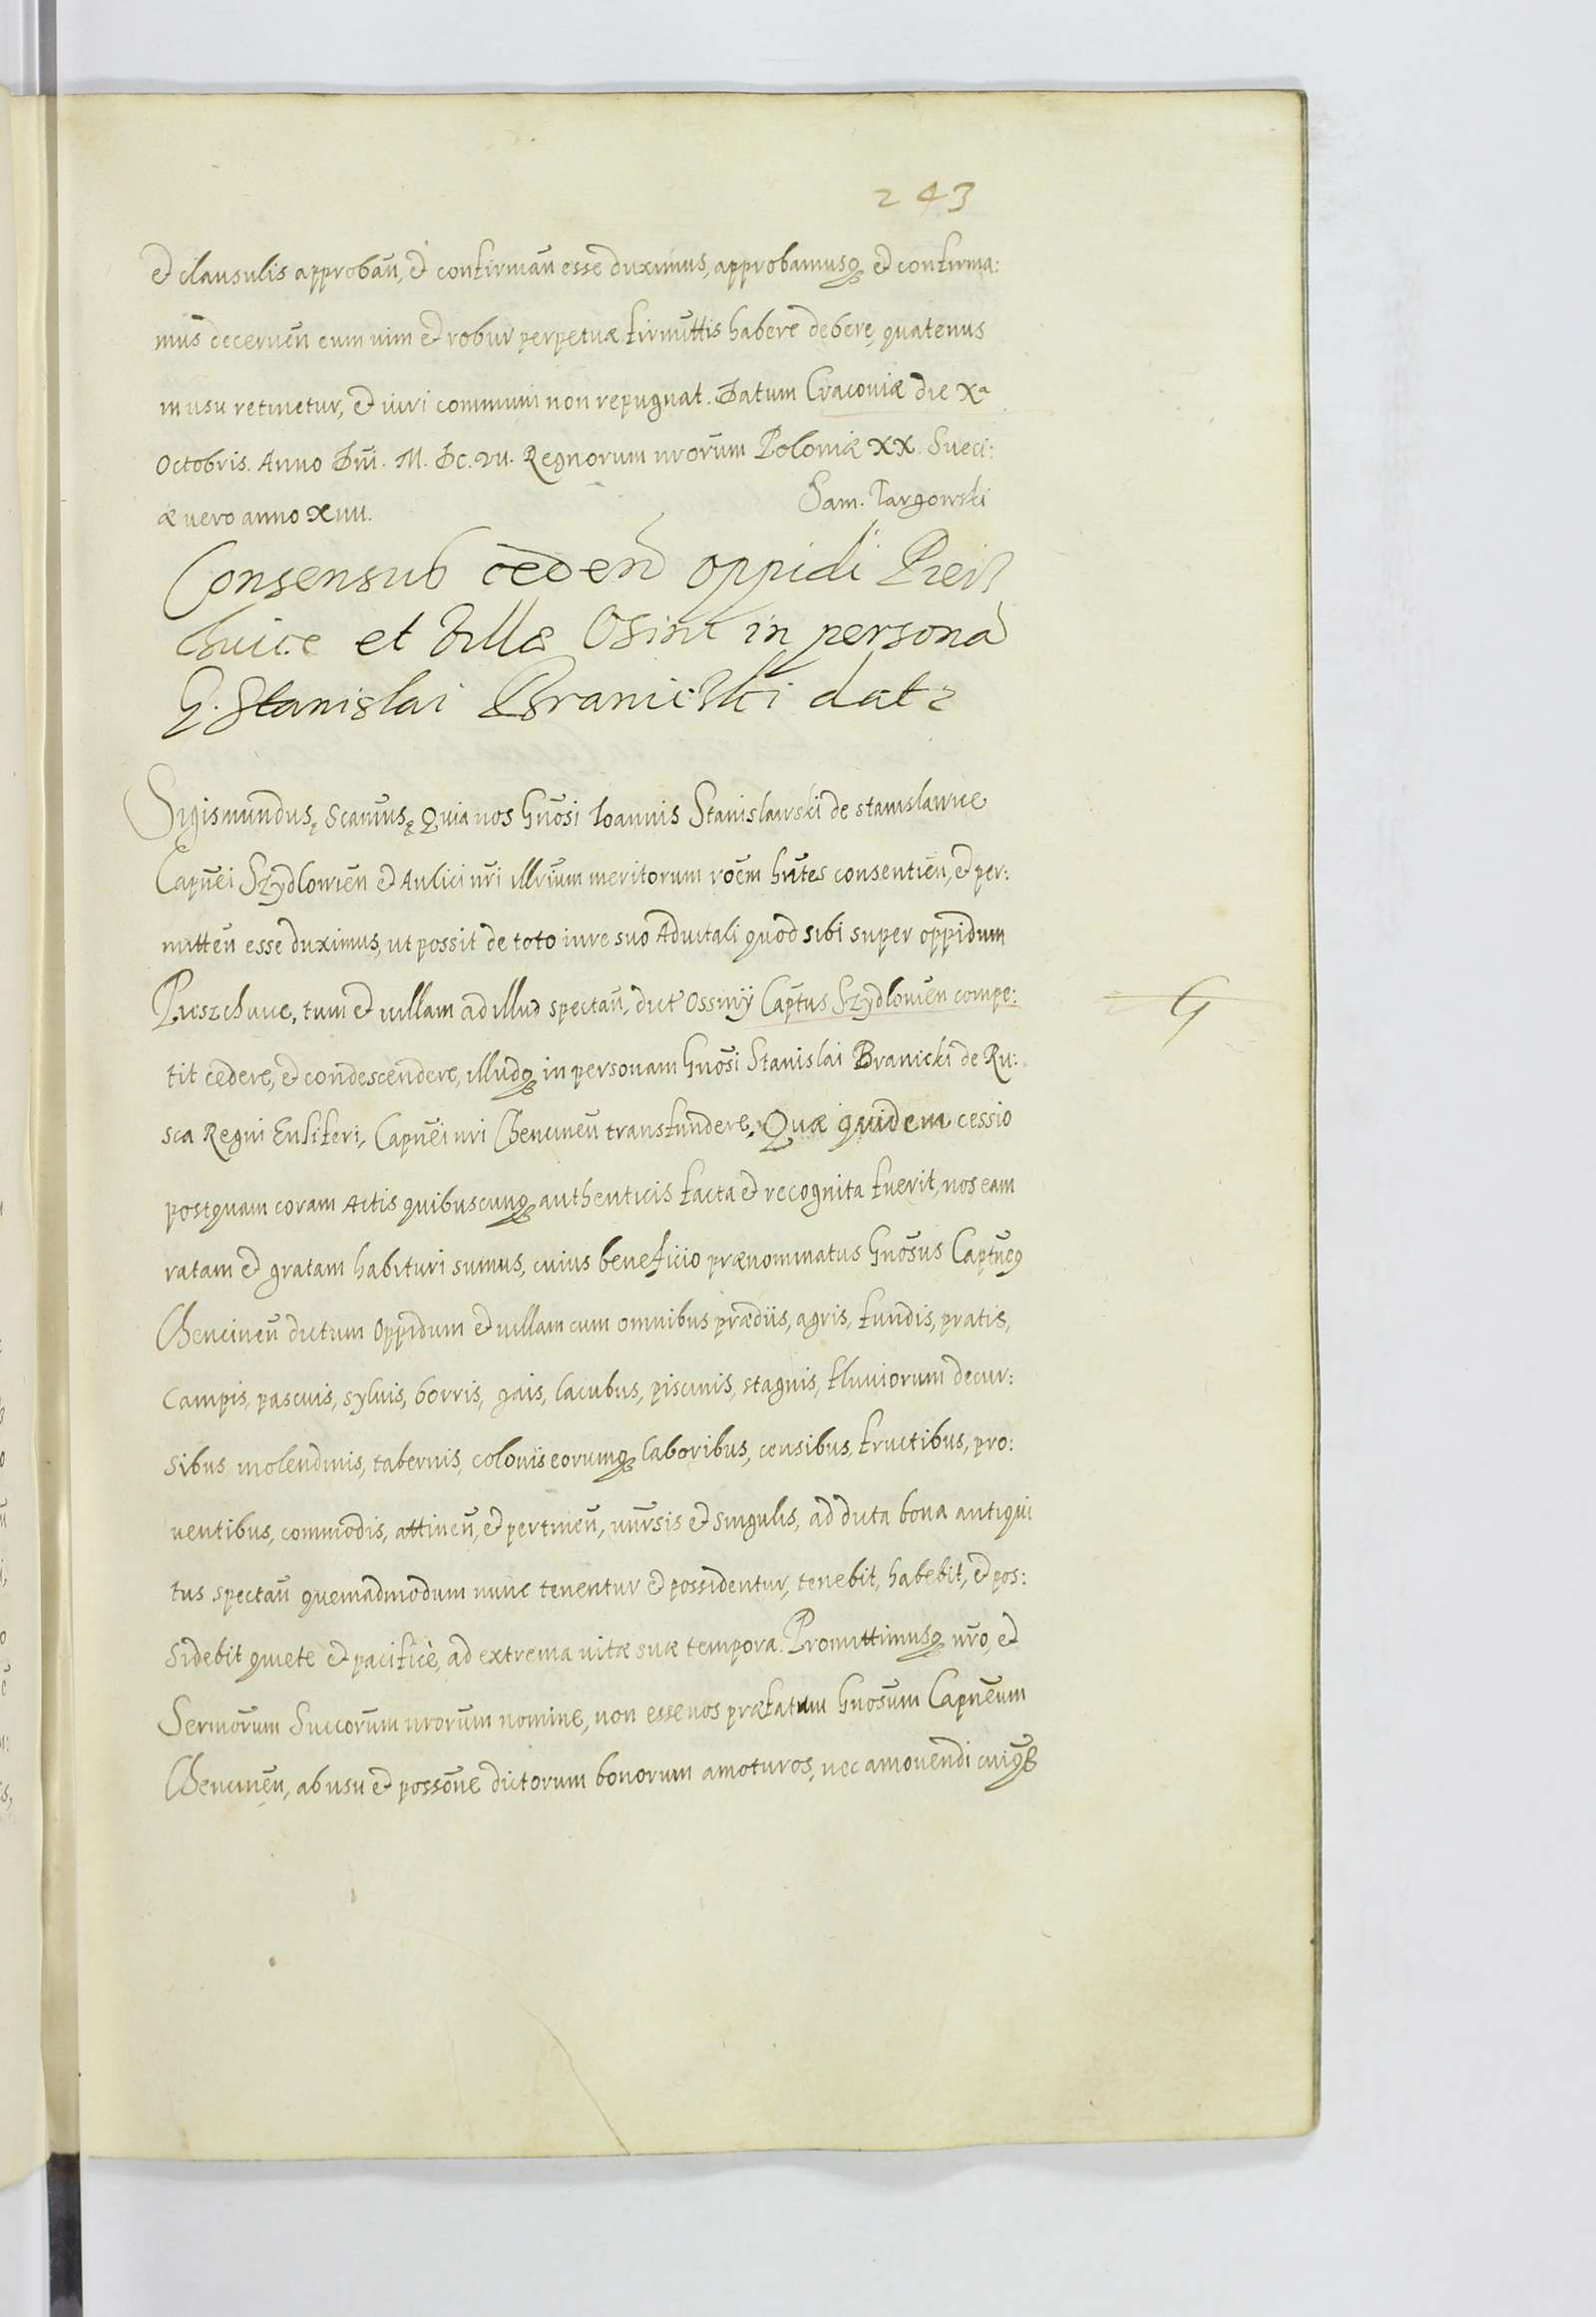 243
et clausulis approbañ, et confirmañ esse duximus, approbamusq₃ et confirma:
mus decerneñ eum uim et robur perpetuæ firmittis habere debere, quatenus
in usu retinetur, et iuri communi non repugnat. Datum Cracouiæ die Xª
Octobris. Anno Dñi. M. DC. VII. Regnorum nrorũm Poloniæ XX. Sueci:
æ uero anno XIIII.
Sam. Targowski
Consensus ceden oppidi
et villæ Osini in persona
G. Stanislai Braniczki dat
Sigismundus, Scamus, Quia nos Gnõsi Ioannis Stanislawski de Stanislawice
Capñei Szydlowieñ et Aulici nri illrium meritorum roẽm hñtes consentieñ, et per:
mitteñ esse duximus, ut possit de toto iure suo Aduitali quod sibi super oppidum
tum et uillam ad illud spectañ, dict Ossiny Captus Szydlouien compe:
tit cedere, et condescendere, illudq₃ in personam Gnõsi Stanislai Branicki de Ru:
sca Regni Ensiferi, Capñei nri Chencineñ transfundere. Quæ quidem cessio
postquam coram Actis quibuscunq₃ authenticis facta et recognita fuerit, nos eam
ratam et gratam habituri sumus, cuius beneficio prænominatus Gnõsus Captũcq
Chencineñ dictum Oppidum et uillam cum omnibus prædiis, agris, fundis, pratis,
campis, pascuis, syluis, borris, gais, lacubus, piscinis, stagnis, fluuiorum decur:
sibus molendinis, tabernis, colonis eorumq₃ laboribus, censibus, fructibus, pro:
uentibus, commodis, attineñ, et pertineñ, unr̃sis et singulis, ad dicta bona antiqui
tus spectañ quemadmodum nunc tenentur et possidentur, tenebit, habebit, et pos:
sidebit quiete et pacificè, ad extrema uitæ suæ tempora. Promittimusq₃ nr̃o, et
Sermõrum Succorũm nrorũm nomine, non esse nos præfatum Gnosũm Capñeum
Chencineñ, ab usu et possõne dictorum bonorum amoturos, nec amouendi cuiq₃
G